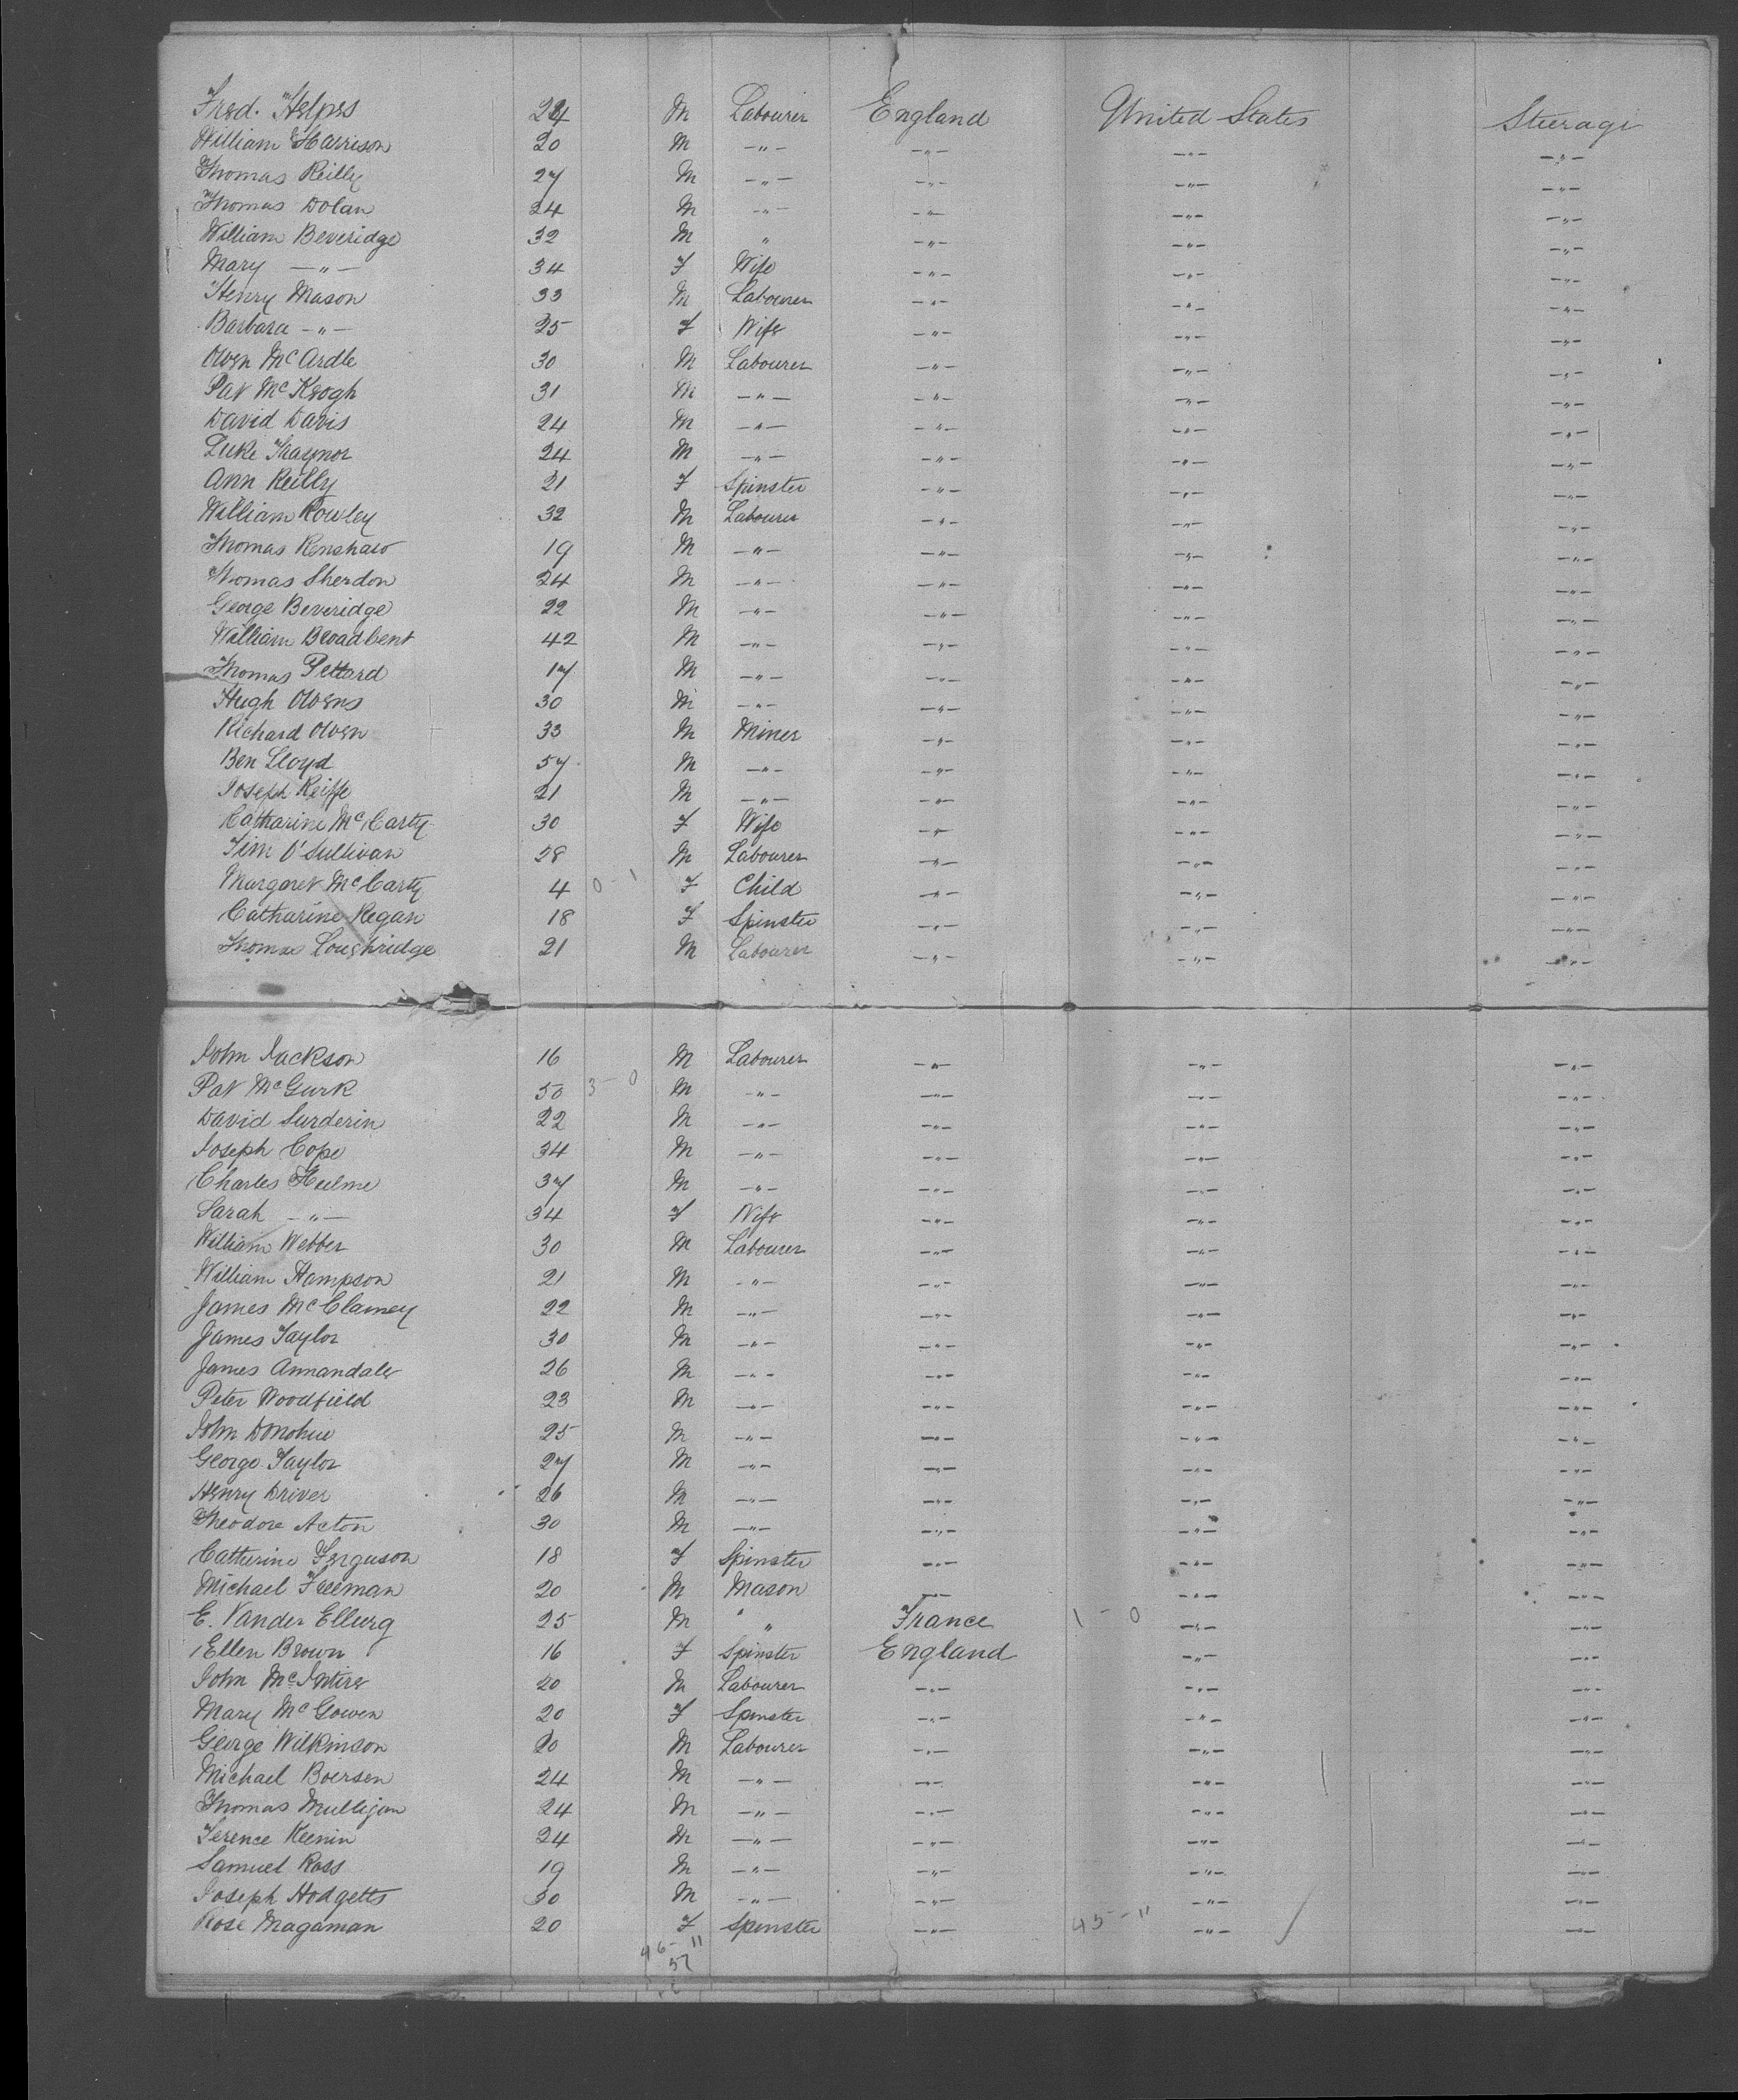 Fred. Helps 24 M Labourer England United States Steerage
William Harrison 20 M —〃— —〃— —〃— —〃—
Thomas Reilly 27 M —〃— —〃— —〃— —〃—
Thomas Dolan 24 M —〃— —〃— —〃— —〃—
William Beveridge 32 M 〃 —〃— —〃— —〃—
Mary —〃— 34 F Wife —〃— —〃— —〃—
Henry Mason 33 M Labourer —〃— —〃— —〃—
Barbara —〃— 25 F Wife —〃— —〃— —〃—
Owen McArdle 30 M Labourer —〃— —〃— —〃—
Pat McKeogh 31 M —〃— —〃— —〃— —〃—
David Davis 24 M —〃— —〃— —〃— —〃—
Luke Traynor 24 M —〃— —〃— —〃— —〃—
Ann Reilly 21 F Spinster —〃— —〃— —〃—
William Rowley 32 M Labourer —〃— —〃— —〃—
Thomas Renshaw 19 M —〃— —〃— —〃— —〃—
Thomas Sherdon 24 M —〃— —〃— —〃— —〃—
George Beveridge 22 M —〃— —〃— —〃— —〃—
William Broadbent 42 M —〃— —〃— —〃— —〃—
Thomas Pettard 17 M —〃— —〃— —〃— —〃—
Hugh Owens 30 M —〃— —〃— —〃— —〃—
Richard Owen 33 M Miner —〃— —〃— —〃—
Ben Lloyd 57 M —〃— —〃— —〃— —〃—
Joseph Reiffe 21 M —〃— —〃— —〃— —〃—
Catharine McCarty 30 F Wife —〃— —〃— —〃—
Tim O'Sullivan 28 M Labourer —〃— —〃— —〃—
Margaret McCarty 4 0-1 F Child —〃— —〃— —〃—
Catharine Regan 18 F Spinster —〃— —〃— —〃—
Thomas Loughridge 21 M Labourer —〃— —〃— —〃—
John Jackson 16 M Labourer —〃— —〃— —〃—
Pat McGurk 50 3-0 M —〃— —〃— —〃— —〃—
David Surderin 22 M —〃— —〃— —〃— —〃—
Joseph Cope 34 M —〃— —〃— —〃— —〃—
Charles Hulme 37 M —〃— —〃— —〃— —〃—
Sarah —〃— 34 F Wife —〃— —〃— —〃—
William Webber 30 M Labourer —〃— —〃— —〃—
William Hampson 21 M —〃— —〃— —〃— —〃—
James McClamey 22 M —〃— —〃— —〃— —〃—
James Taylor 30 M —〃— —〃— —〃— —〃—
James Annandale 26 M —〃— —〃— —〃— —〃—
Peter Woodfield 23 M —〃— —〃— —〃— —〃—
John Donohue 25 M —〃— —〃— —〃— —〃—
George Taylor 27 M —〃— —〃— —〃— —〃—
Henry Driver 26 M —〃— —〃— —〃— —〃—
Theodore Acton 30 M —〃— —〃— —〃— —〃—
Catherine Ferguson 18 F Spinster —〃— —〃— —〃—
Michael Freeman 20 M Mason —〃— —〃— —〃—
E. Vander Elburg 25 M 〃 〃 France 1-0 —〃— —〃—
Ellen Brown 16 F Spinster England —〃— —〃—
John McIntire 20 M Labourer —〃— —〃— —〃—
Mary McGowen 20 F Spinster —〃— —〃— —〃—
George Wilkinson 20 M Labourer —〃— —〃— —〃—
Michael Boersen 24 M —〃— —〃— —〃— —〃—
Thomas Mulligan 24 M —〃— —〃— —〃— —〃—
Terence Keenin 24 M —〃— —〃— —〃— —〃—
Samuel Ross 19 M —〃— —〃— —〃— —〃—
Joseph Hodgetts 30 M —〃— —〃— —〃— —〃—
Rose Magaman 20 F Spinster —〃— 45-11 —〃— —〃—
46-11
57